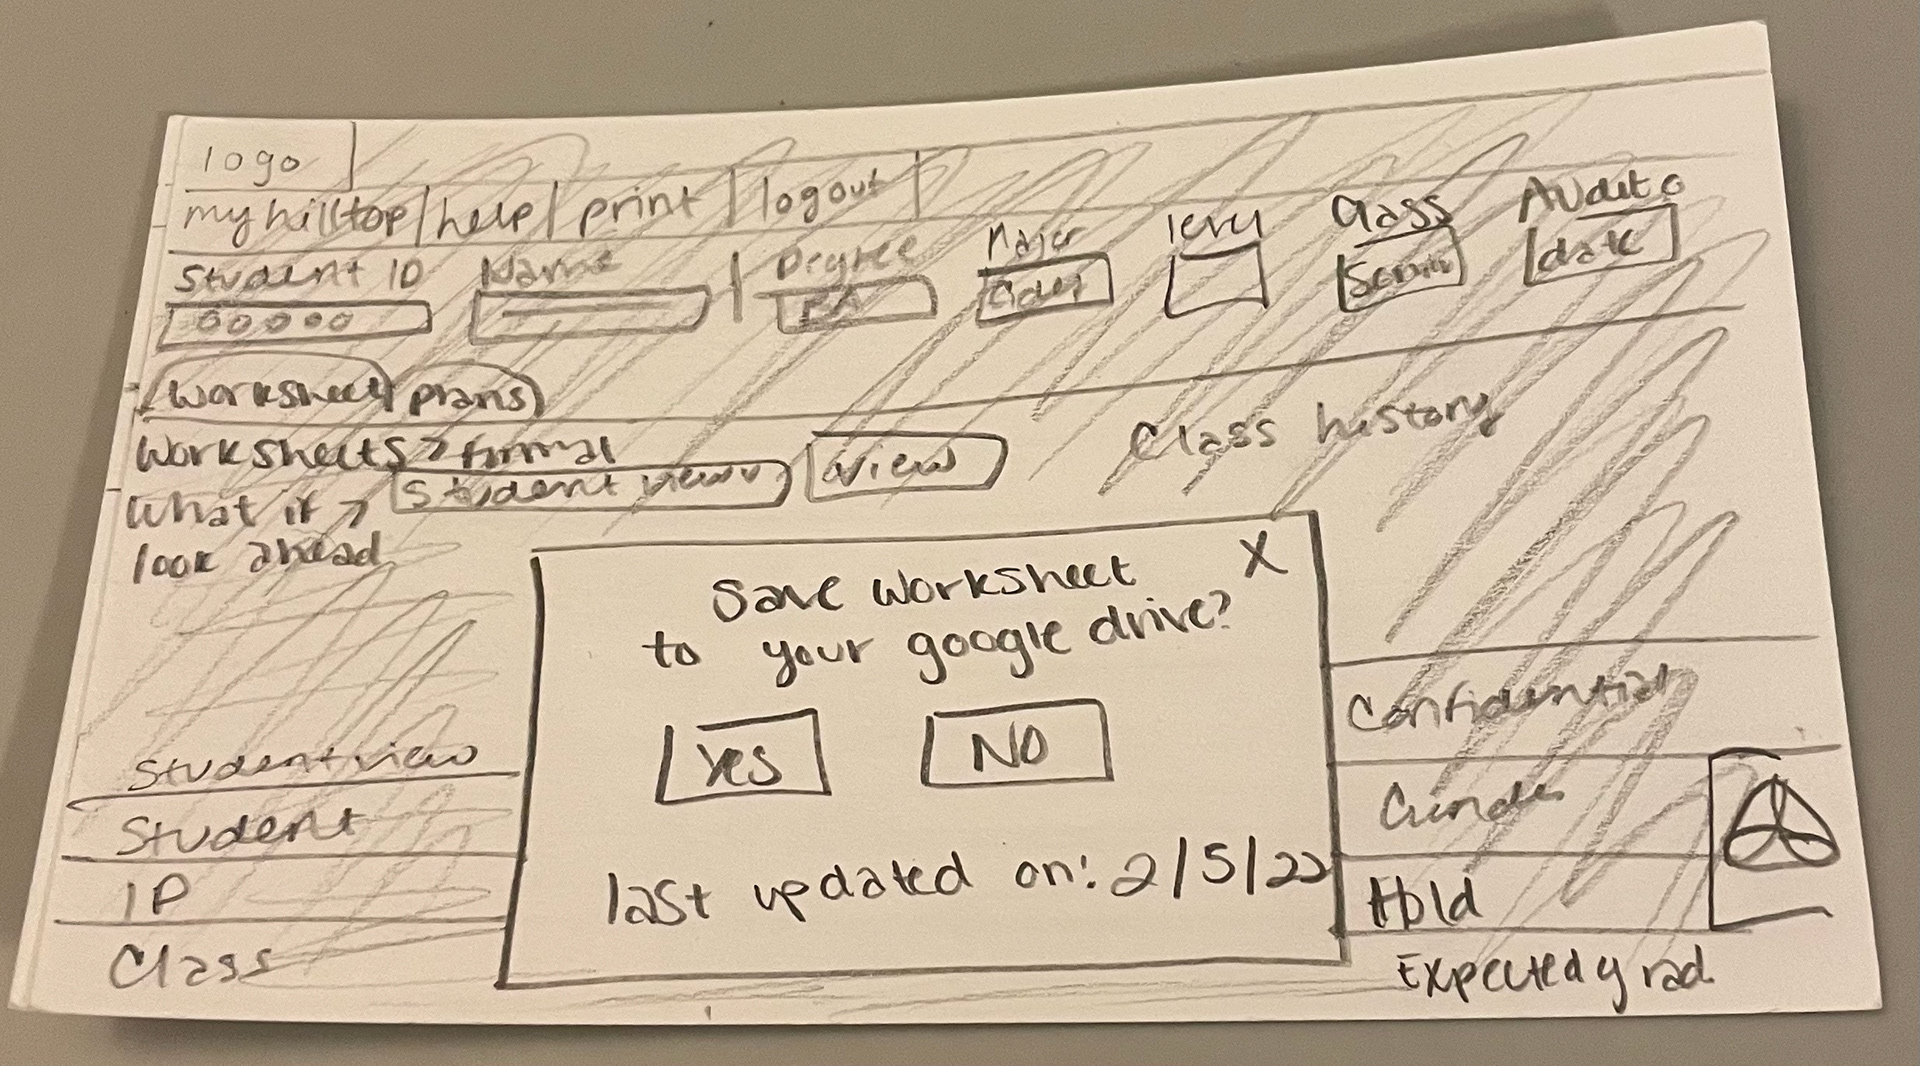 logo
myhilltop | help | print | logout
Student ID Name Degree Major level Class Audit
00000 BA date
Worksheet plans
Worksheets > formal
Student view view Class history
What if >
look ahead
Save worksheet X
to your google drive?
Yes NO
last updated on: 2/5/22
Student view
Student
IP
Class
Confidential
Hold
Expected grad